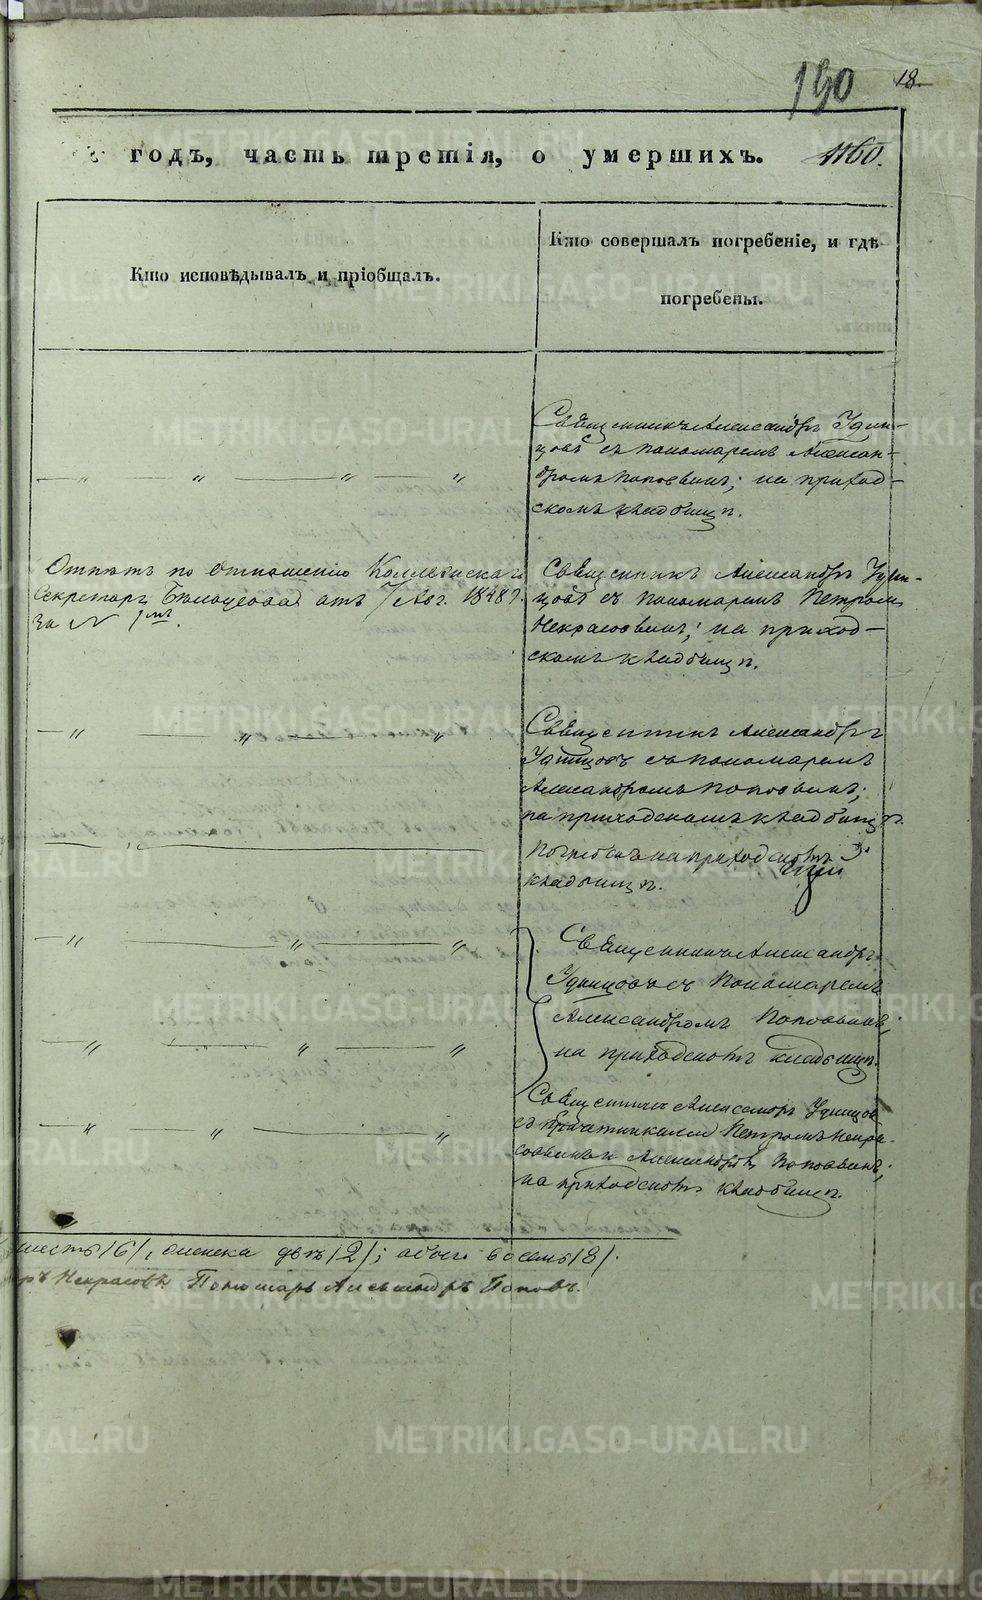 190 18.
годъ, часть третія, о умершихъ. 1160.
Кто исповѣдывалъ и пріобщалъ.
Кто совершалъ погребеніе, и гдѣ
погребены.
Священникъ Александръ Удин-
цовъ съ пономаремъ Алексан-
дромъ Поповымъ; на приход-
скомъ кладбищѣ.
Отпѣтъ по отношенію Коллежскаго
Секретаря от 1 Авг. 1848 г.
за N
Священникъ Александръ Удин-
цовъ съ пономаремъ Петромъ
Некрасовымъ; на приход-
скомъ кладбищѣ.
Священникъ Александръ
Удинцовъ съ пономаремъ
Александромъ Поповымъ;
на приходскомъ кладбищѣ.
Погребенъ на приходскомъ
кладбищѣ.
Священникъ Александръ
Удинцовъ съ Пономаремъ
Александромъ Поповымъ,
на приходскомъ кладбищѣ.
Священникъ Александръ Удинцовъ
съ Причетниками Петромъ Некра-
совымъ и Александромъ Поповымъ;
на приходскомъ кладбищѣ.
шесть /6/, женска двѣ /2/; обоего восемь /8/.
Некрасовъ Пономарь Александръ Поповъ.
METRIKI.GASO-URAL.RU